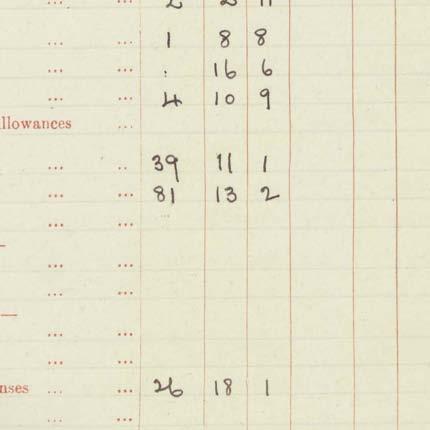 ... ... 1 8 8
... ... . 16 6
... ... 4 10 9
llowances ...
... .. 39 11 1
... .. 81 13 2
—
... ...
... ...
—
... ...
... ...
nses ... ... 26 18 1
... ...